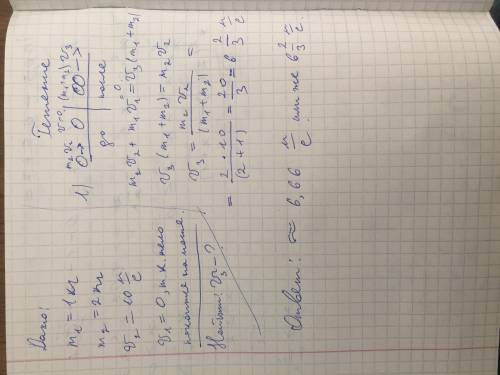 Дано:
m₁ = 1 кг
m₂ = 2 кг
v₂ = 10 м/с
v₁ = 0, т.к. тело
покоится на месте.
Найти: v₃ - ?
Решение
1) m₂ v₂ v=0 | (m₁+m₂) v₃
0→ 0 | 00 →
до | после
m₂v₂ + m₁v₁⁰ = v₃(m₁+m₂)
v₃(m₁+m₂) = m₂v₂
v₃ = m₂v₂ / (m₁+m₂) =
= 2 · 10 / (2+1) = 20/3 = 6 2/3 м/с
Ответ: ≈ 6,66 м/с или же 6 2/3 м/с.